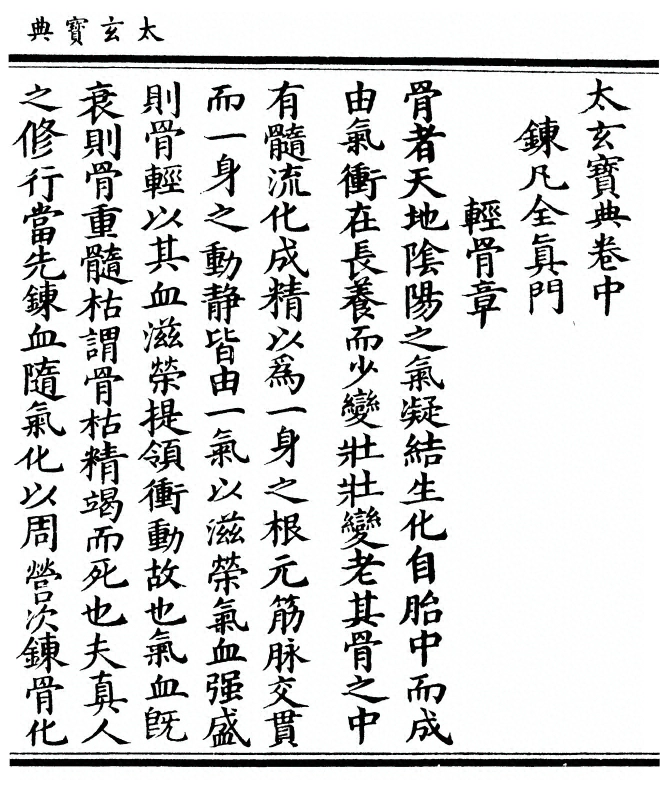 太玄寶典
太玄寶典卷中
鍊凡全眞門
輕骨章
骨者天地陰陽之氣凝結生化自胎中而成
由氣衝在長養而少變壯壯變老其骨之中
有髓流化成精以為一身之根元筋脉交貫
而一身之動靜皆由一氣以滋榮氣血强盛
則骨輕以其血滋榮提領衝動故也氣血旣
衰則骨重髓枯謂骨枯精竭而死也夫真人
之修行當先鍊血隨氣化以周營次鍊骨化